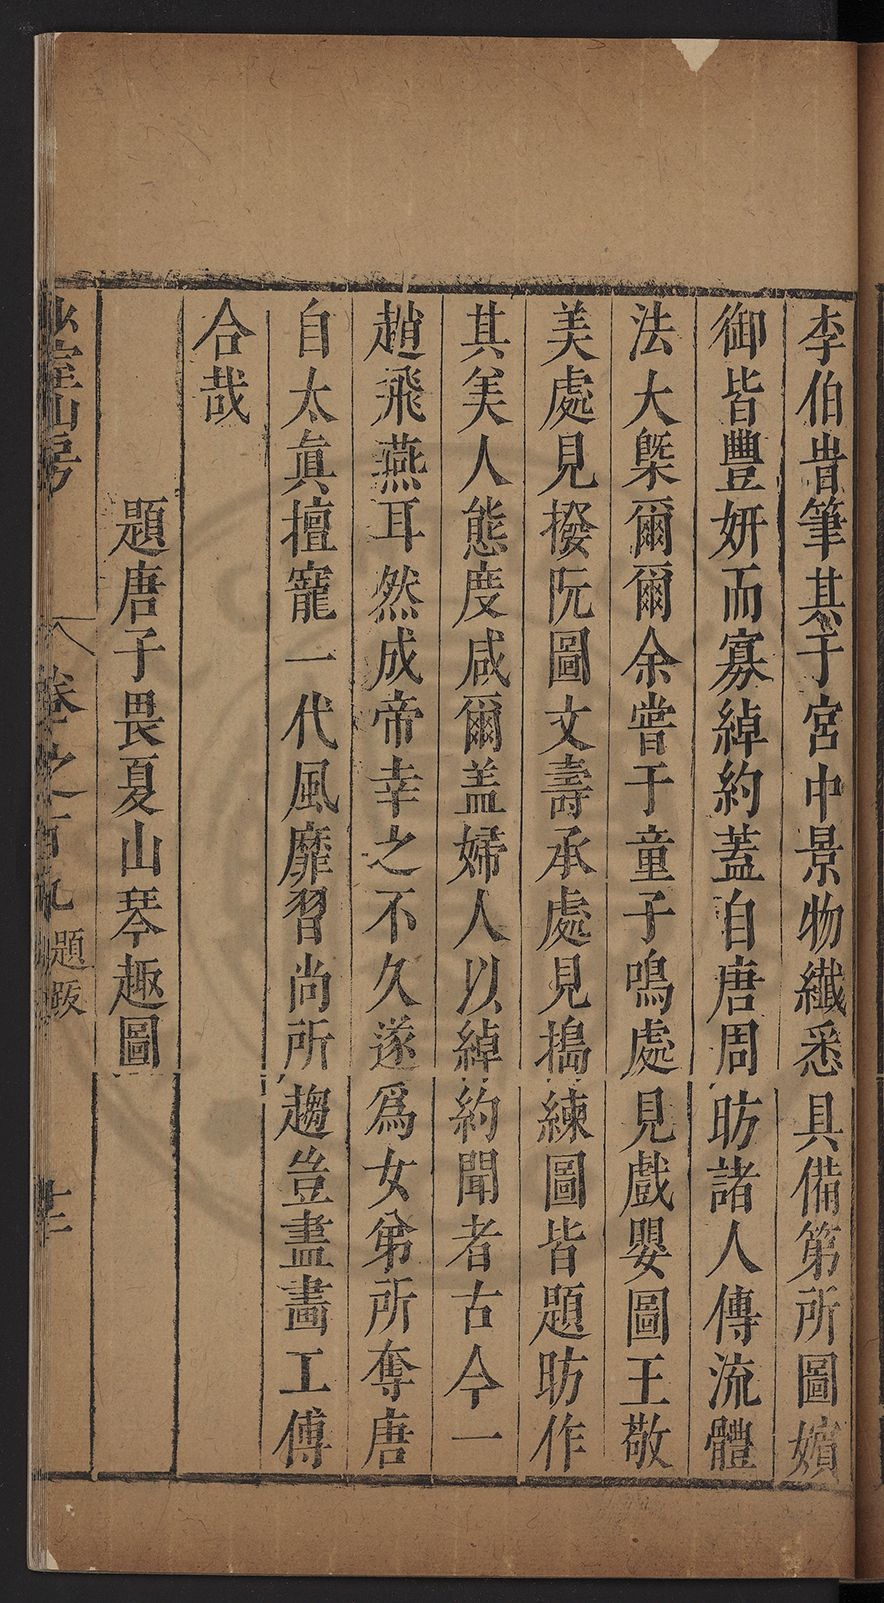 李伯時筆其于宮中景物纖悉具備第所圖嬪
御皆豐妍而寡綽約蓋自唐周昉諸人傳流體
法大槩爾爾余嘗于童子鳴處見戲嬰圖王敬
美處見撥阮圖文壽承處見搗練圖皆題昉作
其美人態度咸爾盖婦人以綽約聞者古今一
趙飛燕耳然成帝幸之不久遂爲女弟所奪唐
自太眞擅寵一代風靡習尚所趨豈盡畫工傅
合哉
題唐子畏夏山琴趣圖
山房
卷之百九
題跋